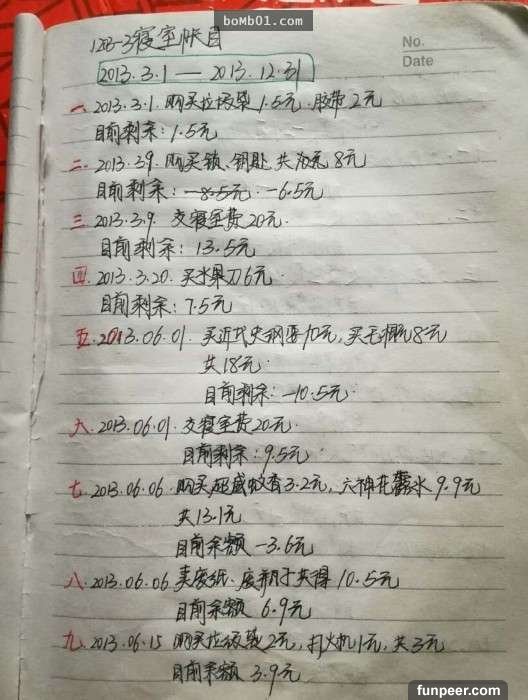 boмb01.com
1203-3寝室帐目
No.
Date
2013.3.1 — 2013.12.31
一. 2013.3.1. 购买垃圾袋1.5元.胶带2元
目前剩余:1.5元
二. 2013.3.9. 购买锁、钥匙共8元
目前剩余:-6.5元
三 2013.3.9. 交寝室费20元.
目前剩余:13.5元
四 2013.3.20. 买水果刀6元.
目前剩余:7.5元
五. 2013.06.01. 买近代史纲要10元,买毛概8元
共18元
目前剩余:-10.5元.
六. 2013.06.01. 交寝室费20元.
目前剩余:9.5元
七 2013.06.06. 购买超威蚊香3.2元,六神花露水9.9元
共13.1元
目前余额 -3.6元
八. 2013.06.06. 卖废纸、废瓶子共得10.5元
目前余额 6.9元
九. 2013.06.15 购买垃圾袋2元,打火机1元,共3元
目前余额 3.9元
funpeer.com